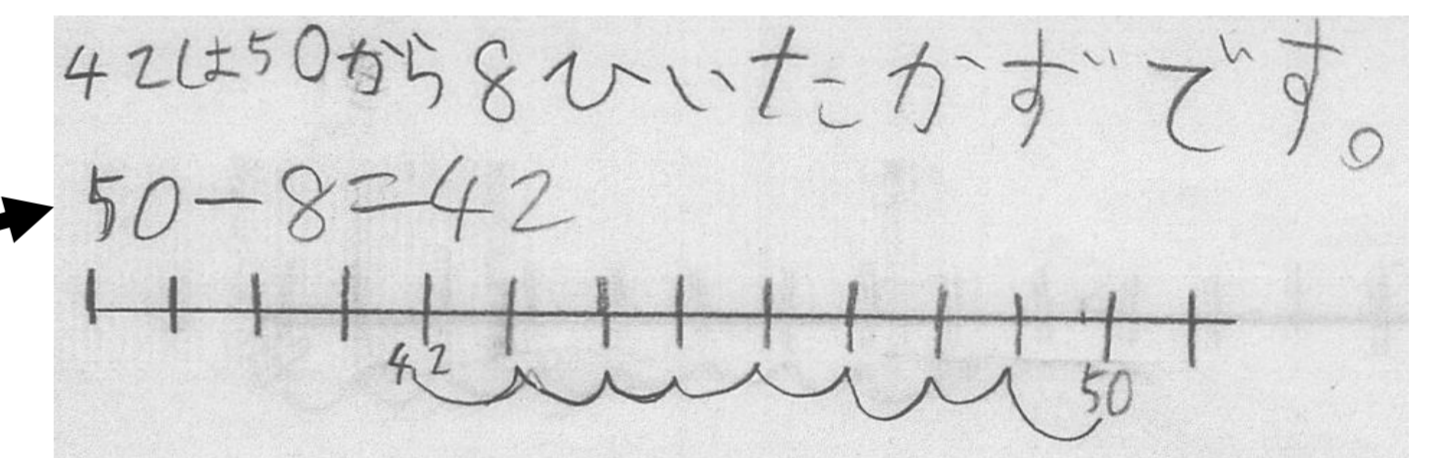 42は50から8ひいたかずです。
50-8=42
42 50